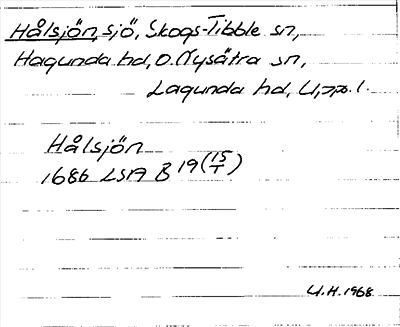 Hålsjön, sjö, Skogs-Tibble sn,
Hagunda hd, o. Nysätra sn,
Lagunda hd, Upps. l.
Hålsjön
1686 LSA B 19 (15/1)
U.H. 1968